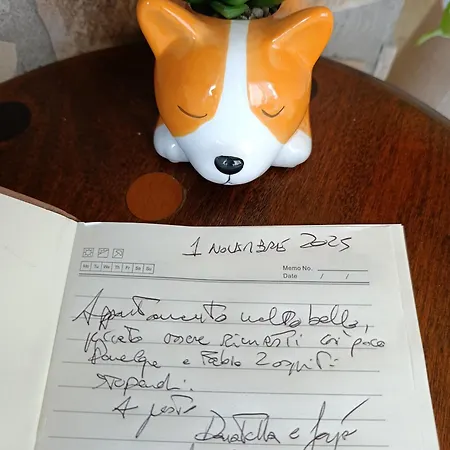 1 NOVEMBRE 2025
Memo No.
Mo Tu We Th Fr Sa Su
Date / /
Appartamento molto bello,
peccato essere rimasti così poco
e Fabio
stupendi.
A presto
Donatella e